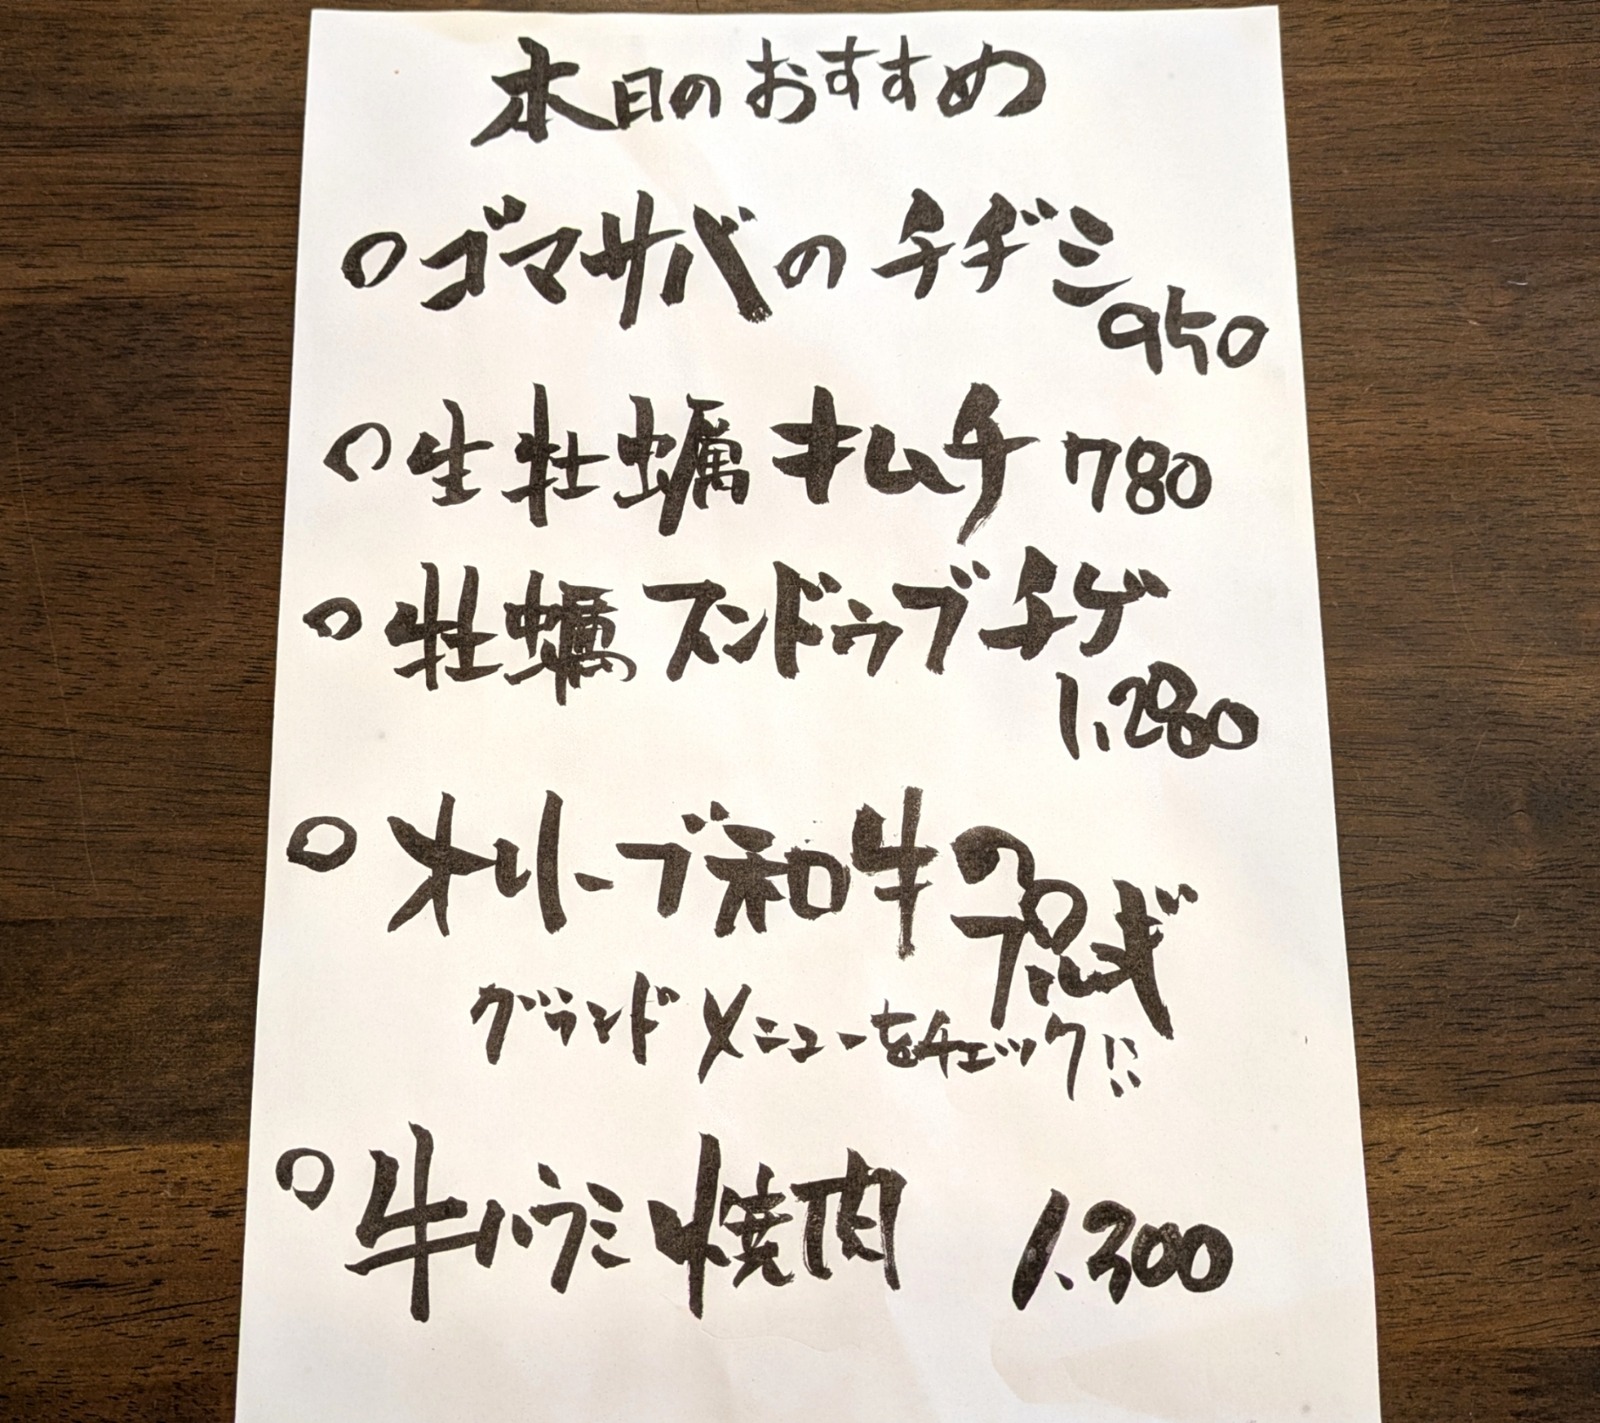 本日のおすすめ
○ゴマサバのチヂミ
950
○生牡蠣キムチ 780
○牡蠣スンドゥブチゲ
1,280
○オリーブ和牛の
プルコギ
グランドメニューをチェック!!
○牛ハラミ焼肉 1.300